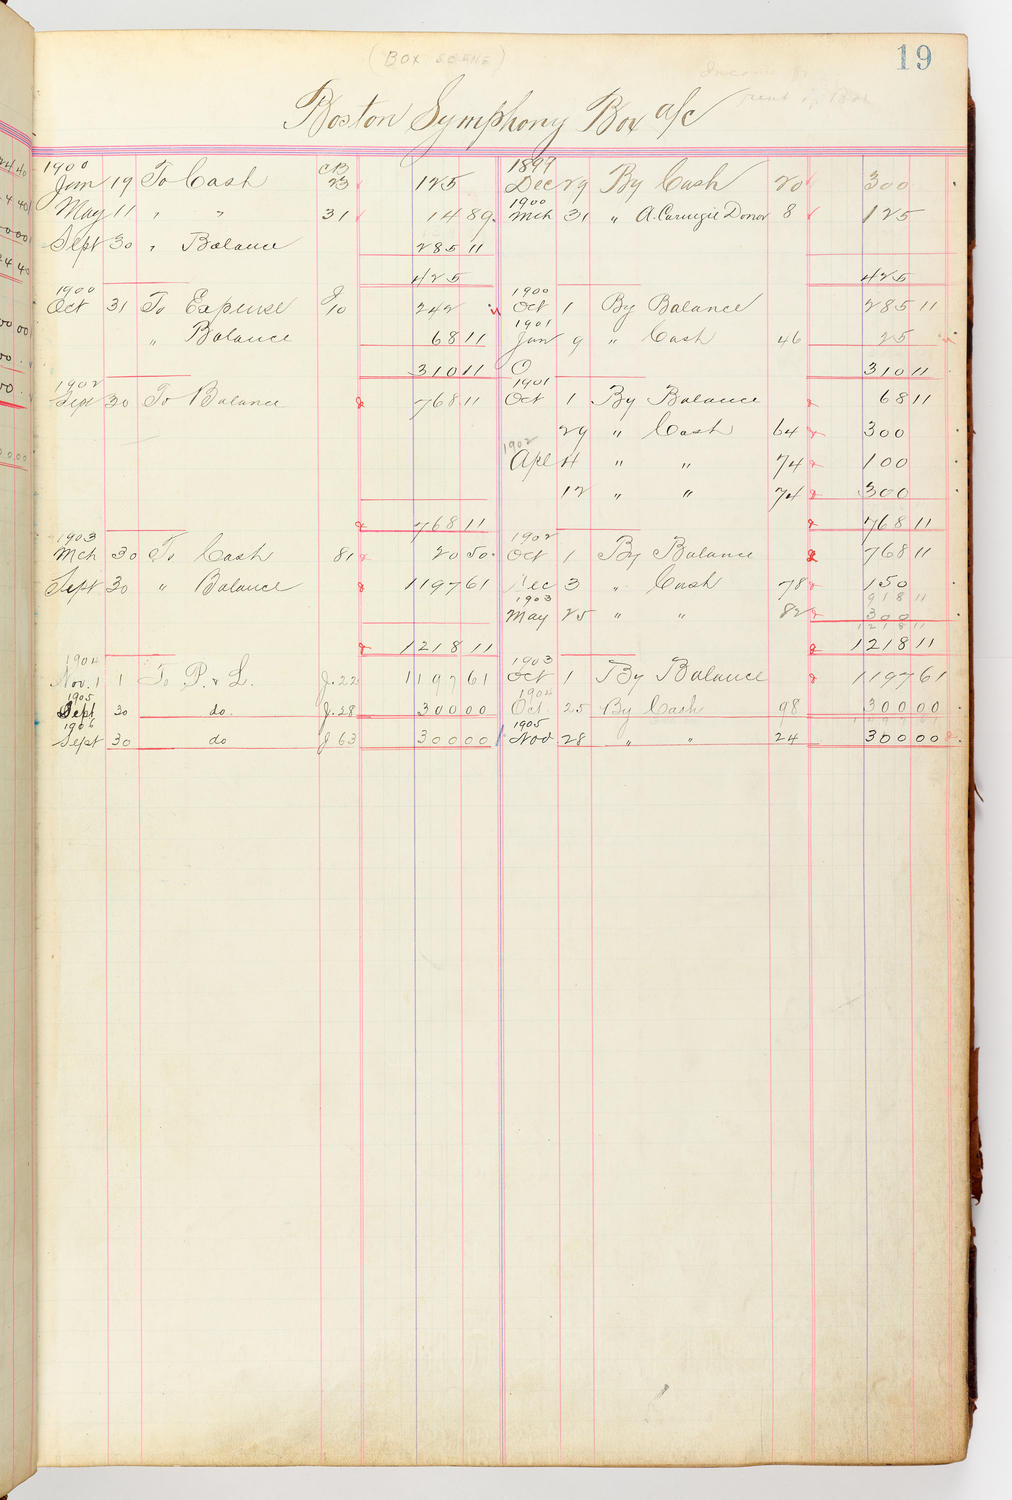 19
(BOX SCENE)
Boston Symphony Box a/c
1900 CB 1897
Jan 19 To Cash 23 125 Dec 29 By Cash 20 300
1900
May 11 " " 31 14 89 Mch 31 " A. Carnegie Donor 8 125
Sept 30 " Balance 285 11
425 425
1900 1900
Oct 31 To Expense J/10 242 Oct 1 By Balance 285 11
1901
" Balance 68 11 Jan 9 " Cash 46 25
310 11 310 11
1902 1901
Sept 30 To Balance 768 11 Oct 1 By Balance 68 11
29 " Cash 64 300
1902
Apl 4 " " 74 100
12 " " 74 300
768 11 768 11
1903 1902
Mch 30 To Cash 81 20 50 Oct 1 By Balance 768 11
Sept 30 " Balance 1197 61 Dec 3 " Cash 78 150
1903 918 11
May 25 " " 82 300
1218 11
1218 11 1218 11
1904 1903
Nov. 1 1 To P. & L. J. 22 1197 61 Oct 1 By Balance 1197 61
1905 1904
Sept 30 do. J. 28 300 00 Oct. 25 By Cash 98 300 00
1906 1905
Sept 30 do J 63 300 00 Nov 28 " " 24 300 00